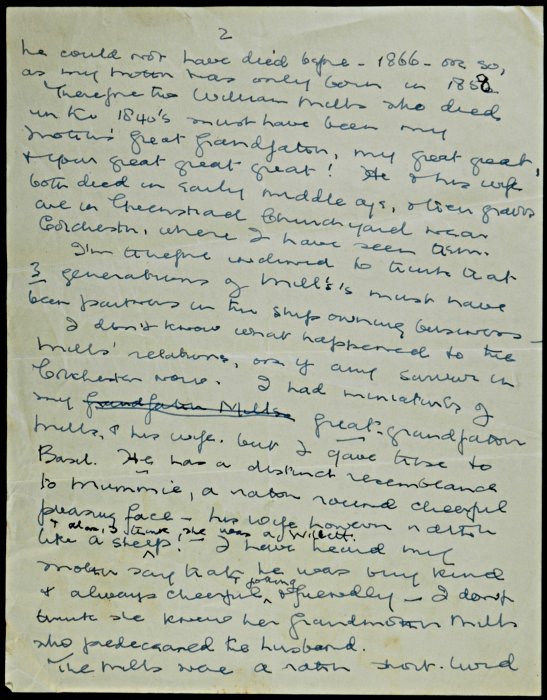 2
he could not have died before - 1866 - or so,
as my mother was only born in 1858
Therefore the William Mills who died
in the 1840's must have been my
mother's great grandfather, my great great,
& your great great great! He & his wife
both died in early middle age, & their graves
are in Greenstead Churchyard near
Colchester, where I have seen them.
I'm therefore inclined to think that
3 generations of Mills's must have
been partners in the ship owning business -
I don't know what happened to the
Mills' relations, or if any survive in
Colchester now. I had miniatures of
my grandfather Mills great-grandfather
Mills, & his wife. but I gave these to
Basil. He has a distinct resemblance
to Mummie, a rather round cheerful
pleasing face - his wife however rather
& alas, I think, she was a Wilett.
like a sheep! - I have heard my
mother say that he was very kind
& always cheerful, joking & friendly - I don't
think she knew her Grandmother Mills
who predeceased the husband.
The Mills were a rather short-lived